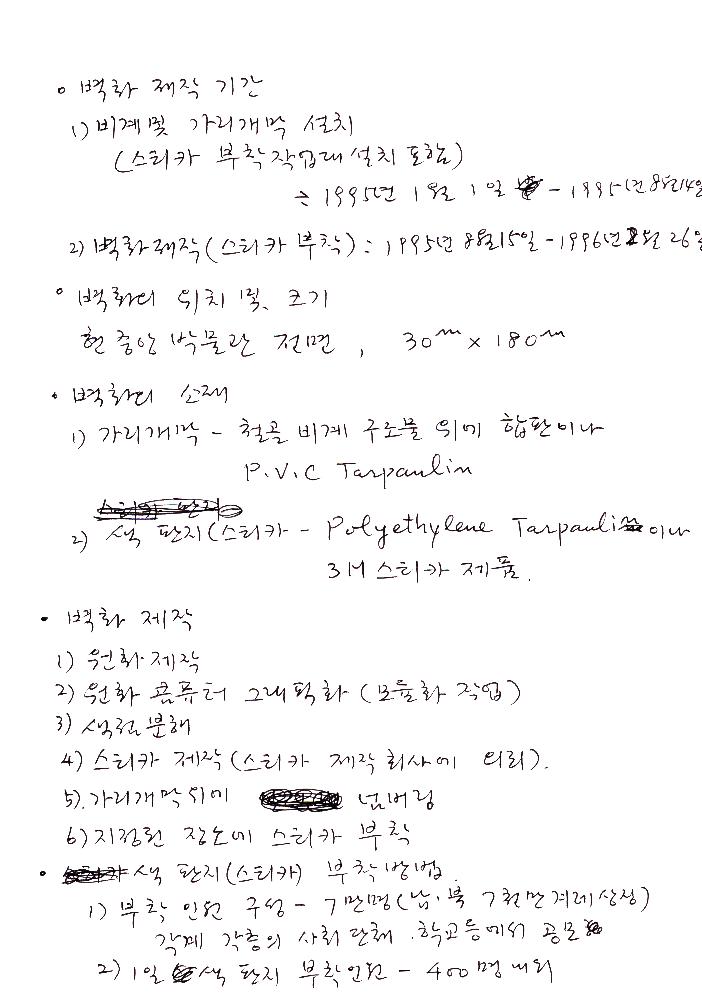 ◦ 벽화 제작 기간
1) 비계및 가리개막 설치
(스티카 부착작업대 설치 포함)
: 1995년 1월 1일 - 1995년 8월 14일
2) 벽화제작(스티카 부착) : 1995년 8월 15일 - 1996년 2월 26일
◦ 벽화의 위치 및 크기
현 중앙 박물관 전면, 30m x 180m
• 벽화의 소재
1) 가리개막 - 철골 비계 구조물 위에 합판이나
P.V.C Tarpaulin
2) 색 판지(스티카 - Polyethylene Tarpaulin 이나
3M 스티카 제품.
• 벽화 제작
1) 원화제작
2) 원화 콤퓨터 그래픽화 (모듈화 작업)
3) 색점분해
4) 스티카 제작(스티카 제작회사에 의뢰).
5). 가리개막위에 넘버링
6) 지정된 장소에 스티카 부착
• 색 판지(스티카) 부착방법.
1) 부착 인원 구성 - 7만명(남·북 7천만겨레상징)
각계 각층의 사회단체. 학교등에서 공모
2) 1일 색 판지 부착인원 - 400명내외